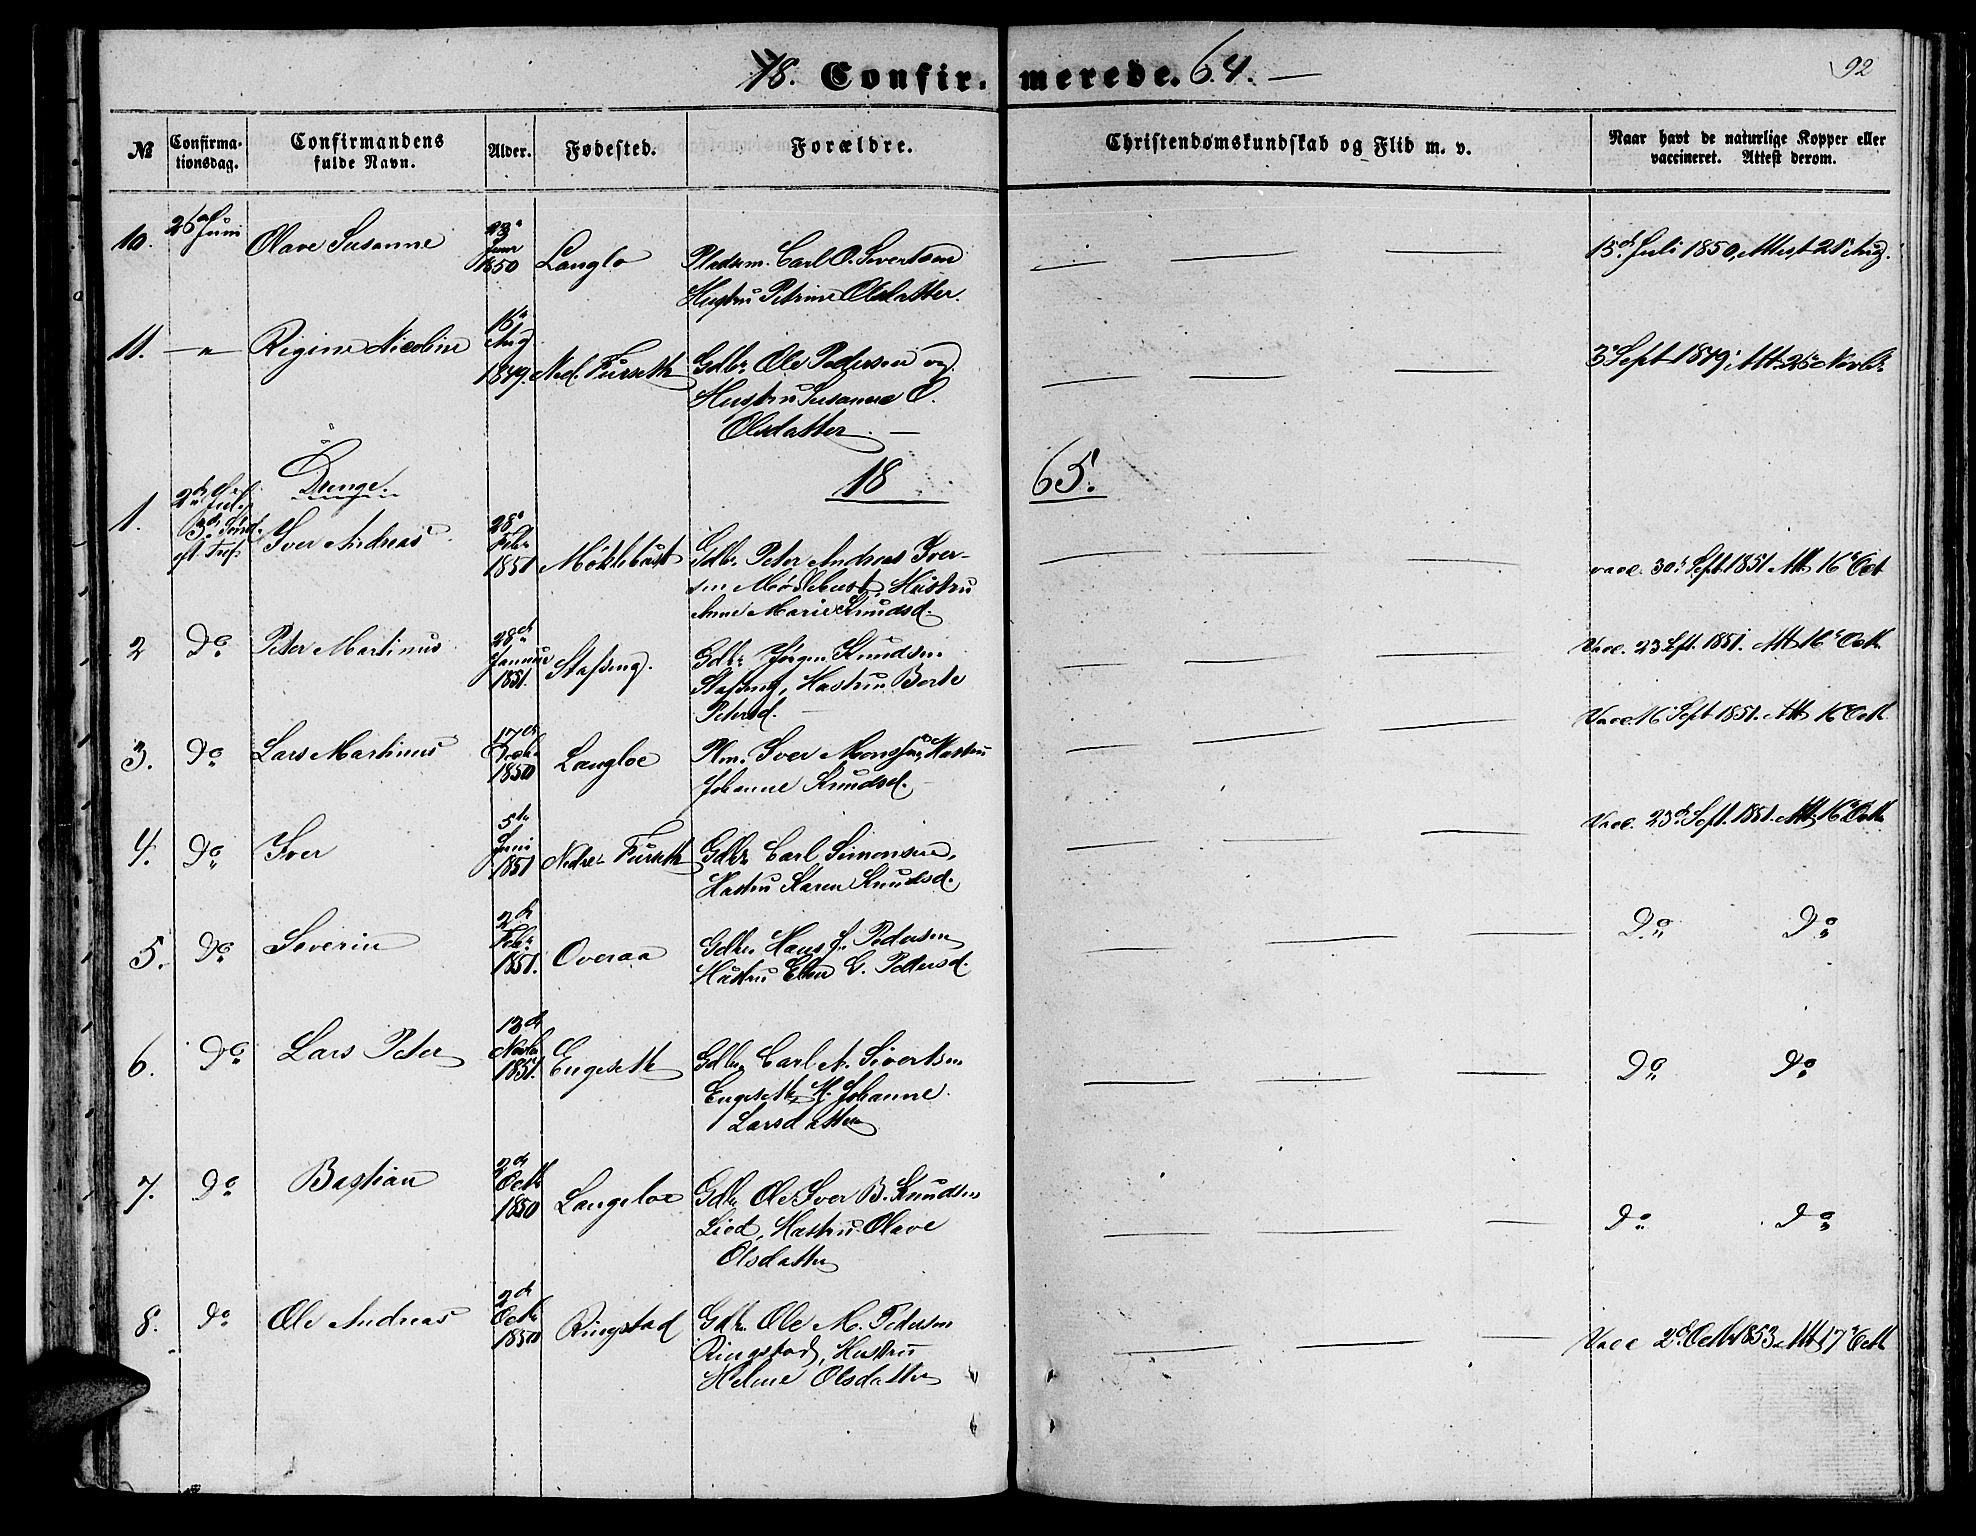 18. Confir- merede. 64. —
92
№
Confirma-
tionsdag.
Confirmandens
fulde Navn.
Alder.
Fødested.
Forældre.
Christendomskundskab og Flid m. v.
Naar havt de naturlige Kopper eller
vaccineret. Attest derom.
10.
26de Juni
Olave Susanne
1850
Langlo
Pladsm. Carl O. Sivertsen
Hustru Petrine Olsdatter.
15de Juli 1850, Attest 21 Aug.
11.
—"—
Regine Nicoline
16de
Aug
1849.
Ned. Furseth
Gdbr. Ole Pedersen og
Hustru Susanne O.
Olsdatter. —
3de Sept 1849. Att. 25de Novbr.
Drenge.
18
65.
1.
Iver Andreas
28de
Febr.
1851
Møklebust
Gdbr. Peter Andreas Iver-
sen Møklebust, Hustru
Anne Marie Knudsd.
vacc. 30te Sept. 1851 Att. 16de Oct
2
Do
Peter Martinus
28de
Januar
1851.
Stafseng.
Gdbr. Jørgen Knudsen
Stafseng, Hustru Berte
Petersd.
Vacc. 23 Spt. 1851. Att. 16de Octb.
3.
Do
Lars Martinus
17de
1850
Langloe
Plm. Iver Monsen, Hustru
Johanne Knudsd. —
Vacc. 16 Sept 1851. Att. 16 Octb.
4.
Do
Iver
5te
Juni
1851
Nedre Furseth
Gdbr. Carl Simonsen,
Hustru Karen Knudsd.
Vacc. 23de Sept. 1851. Att. 16 Octb.
5.
Do
Severin
2de
Febr.
1851.
Overaa
Gdbr. Hans J. Pedersen
Hustru Elen G. Petersd.
Do Do
6.
Do
Lars Peter
13de
Novbr
1851.
Engeseth
Gdbr. Carl A. Sivertsen
Engeseth, H. Johanne
Larsdatter
Do Do
7.
Do
Bastian
2de
Octb
1850
Langeloe
Gdbr. Ole Iver B. Knudsen
Liod, Hustru Olave
Olsdatter
Do Do
8.
Do
Ole Andreas
2de
Octbr
1850
Ringstad
Gdbr. Ole M. Pedersen
Ringstad, Hustru
Helene Olsdatter
Vacc 2de Octb 1853. Att. 17de Octb